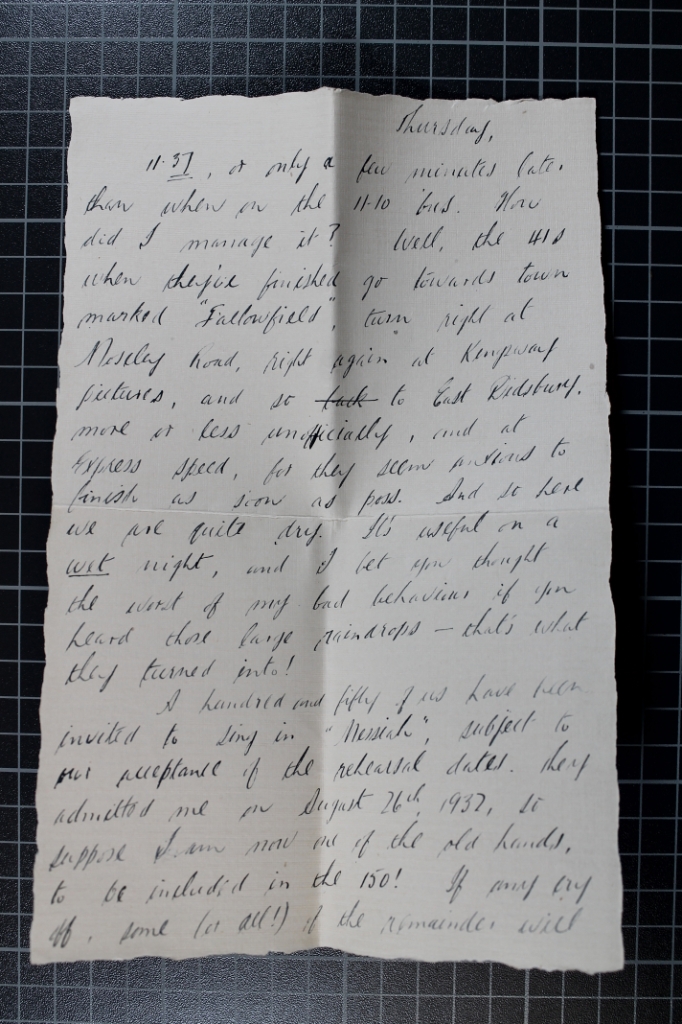 Thursday,
11-37, or only a few minutes later
than when on the 11-10 'bus. How
did I manage it? Well, the 41s
when they've finished go towards town
marked "Fallowfield", turn right at
Moseley Road, right again at Kingsway
pictures, and so back to East Didsbury,
more or less unofficially, and at
express speed, for they seem anxious to
finish as soon as poss. And so here
we are quite dry. It's useful on a
wet night, and I bet you thought
the worst of my bad behaviour if you
heard those large raindrops — that's what
they turned into!
A hundred and fifty of us have been
invited to sing in "Messiah", subject to
our acceptance of the rehearsal dates. They
admitted me on August 26th, 1937, so
suppose I am now one of the old hands,
to be included in the 150! If any cry
off, some (or all!) of the remainder will